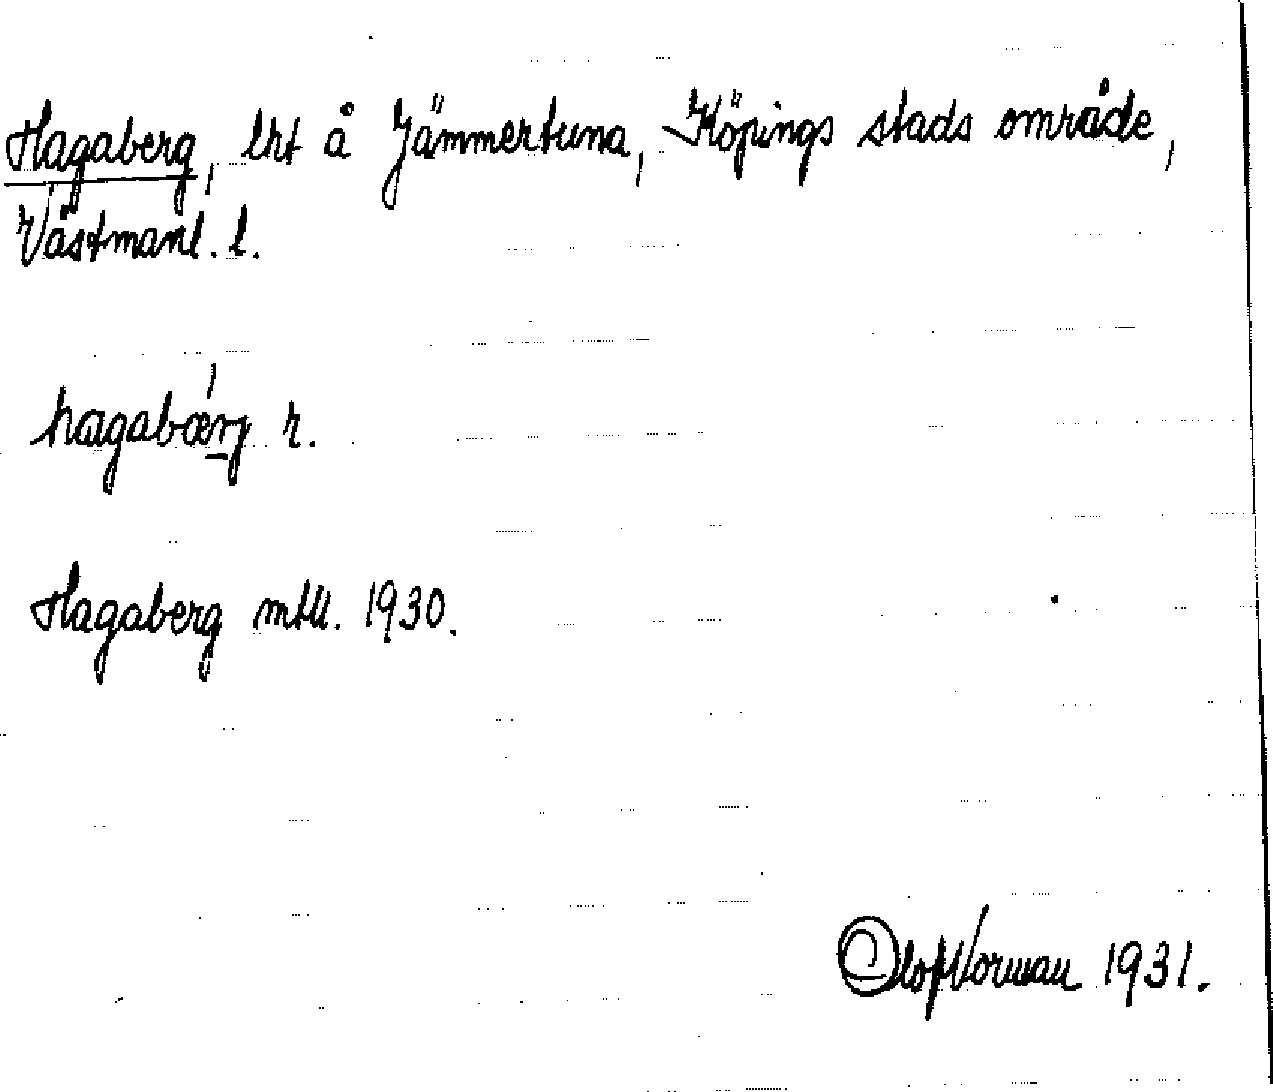 Hagaberg, lht å Jämmertuna, Köpings stads område,
Västmanl. l.
hagabærj r.
Hagaberg mtll. 1930.
Olof Norman 1931.